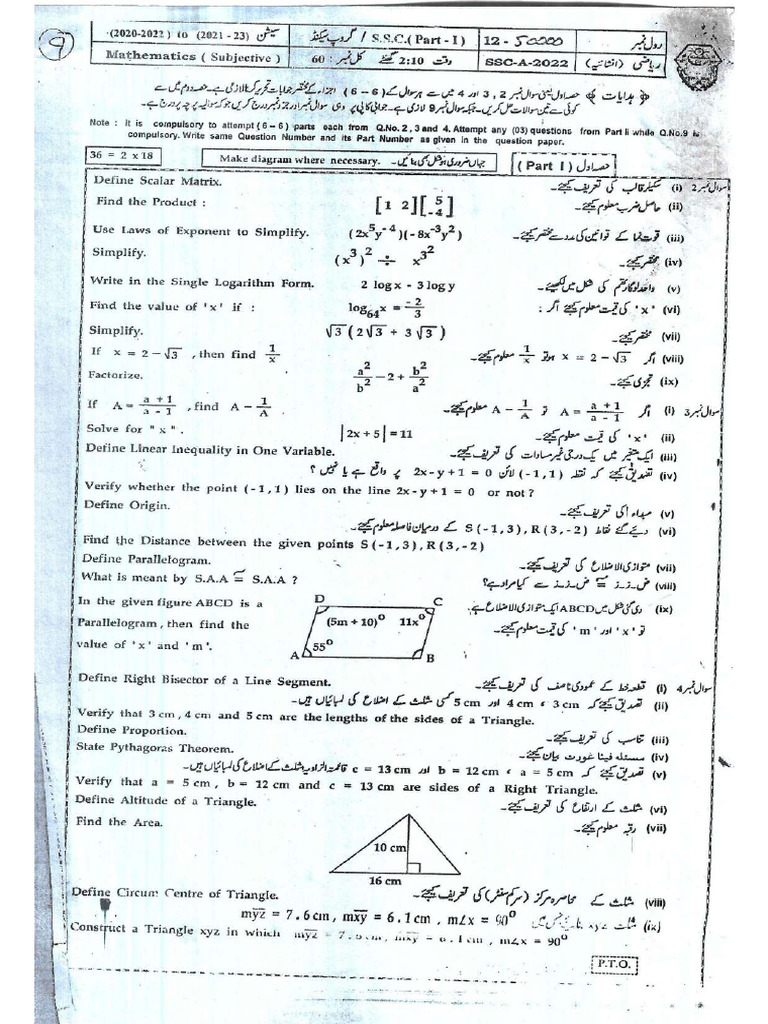 9
(2020-2022) to (2021-23) سیشن
S.S.C.(Part-I) / گروپ سیکنڈ
12-50000
رول نمبر
Mathematics (Subjective)
کل نمبر: 60
وقت 2:10 گھنٹے
SSC-A-2022
ریاضی (انشائیہ)
﴿ہدایات﴾ حصہ اول یعنی سوال نمبر 2 , 3 اور 4 میں سے ہر سوال کے (6-6) اجزاء کے مختصر جوابات تحریر کرنا لازمی ہے۔ حصہ دوم میں سے
کوئی سے تین سوالات حل کریں۔ جبکہ سوال نمبر 9 لازمی ہے۔ جوابی کاپی پر وہی سوال نمبر اور جز نمبر درج کریں جو کہ سوالیہ پرچہ پر درج ہے۔
Note : It is compulsory to attempt (6-6) parts each from Q.No. 2, 3 and 4. Attempt any (03) questions from Part II while Q.No.9 is
compulsory. Write same Question Number and its Part Number as given in the question paper.
36 = 2 x 18
Make diagram where necessary. جہاں ضروری ہو شکل بھی بنائیں۔
(Part I) حصہ اول
Define Scalar Matrix. سکیلر قالب کی تعریف کیجئے۔ (i) سوال نمبر 2
Find the Product : [1 2][5 -4] حاصل ضرب معلوم کیجئے۔ (ii)
Use Laws of Exponent to Simplify. (2x⁵y⁻⁴)(-8x⁻³y²) قوت نما کے قوانین کی مدد سے مختصر کیجئے۔ (iii)
Simplify. (x³)² ÷ x^3² مختصر کیجئے۔ (iv)
Write in the Single Logarithm Form. 2 log x - 3 log y واحد لوگارتھم کی شکل میں لکھیئے۔ (v)
Find the value of 'x' if : log₆₄x = -2/3 'x' کی قیمت معلوم کیجئے اگر : (vi)
Simplify. √3 (2√3 + 3√3) مختصر کیجئے۔ (vii)
If x = 2-√3 , then find 1/x اگر x = 2-√3 ہو تو 1/x معلوم کیجئے۔ (viii)
Factorize. a²/b² - 2 + b²/a² تجزی کیجئے۔ (ix)
If A = a+1/a-1 , find A - 1/A اگر A = a+1/a-1 تو A - 1/A معلوم کیجئے۔ (i) سوال نمبر 3
Solve for "x". |2x + 5| = 11 'x' کی قیمت معلوم کیجئے۔ (ii)
Define Linear Inequality in One Variable. ایک متغیر میں یک درجی غیر مساوات کی تعریف کیجئے۔ (iii)
تصدیق کیجئے کہ نقطہ (-1,1) لائن 2x-y+1=0 پر واقع ہے یا نہیں ؟ (iv)
Verify whether the point (-1,1) lies on the line 2x-y+1 = 0 or not ?
Define Origin. مبداء کی تعریف کیجئے۔ (v)
دیئے گئے نقاط S(-1,3), R(3,-2) کے درمیان فاصلہ معلوم کیجئے۔ (vi)
Find the Distance between the given points S(-1,3), R(3,-2)
Define Parallelogram. متوازی الاضلاع کی تعریف کیجئے۔ (vii)
What is meant by S.A.A ≅ S.A.A ? ض۔ز۔ز ≅ ض۔ز۔ز سے کیا مراد ہے؟ (viii)
In the given figure ABCD is a دی گئی شکل میں ABCD ایک متوازی الاضلاع ہے, (ix)
Parallelogram, then find the تو 'x' اور 'm' کی قیمت معلوم کیجئے۔
value of 'x' and 'm'.
D C
(5m + 10)° 11x°
55°
A B
Define Right Bisector of a Line Segment. قطعہ خط کے عمودی ناصف کی تعریف کیجئے۔ (i) سوال نمبر 4
تصدیق کیجئے کہ 3 cm ، 4 cm اور 5 cm کسی مثلث کے اضلاع کی لمبائیاں ہیں۔ (ii)
Verify that 3 cm, 4 cm and 5 cm are the lengths of the sides of a Triangle.
Define Proportion. تناسب کی تعریف کیجئے۔ (iii)
State Pythagoras Theorem. مسئلہ فیثا غورث بیان کیجئے۔ (iv)
تصدیق کیجئے کہ a = 5 cm ، b = 12 cm اور c = 13 cm قائمتہ الزاویہ مثلث کے اضلاع کی لمبائیاں ہیں۔ (v)
Verify that a = 5 cm, b = 12 cm and c = 13 cm are sides of a Right Triangle.
Define Altitude of a Triangle. مثلث کے ارتفاع کی تعریف کیجئے۔ (vi)
Find the Area. رقبہ معلوم کیجئے۔ (vii)
10 cm
16 cm
Define Circum Centre of Triangle. مثلث کے محاصرہ مرکز (سرکم سنٹر) کی تعریف کیجئے۔ (viii)
مثلث xyz بنائیں جس میں m𝑦𝑧 = 7.6 cm, m𝑥𝑦 = 6.1 cm, m∠x = 90° (ix)
Construct a Triangle xyz in which m𝑦𝑧 = 7.6 cm, m𝑥𝑦 = 6.1 cm, m∠x = 90°
P.T.O.